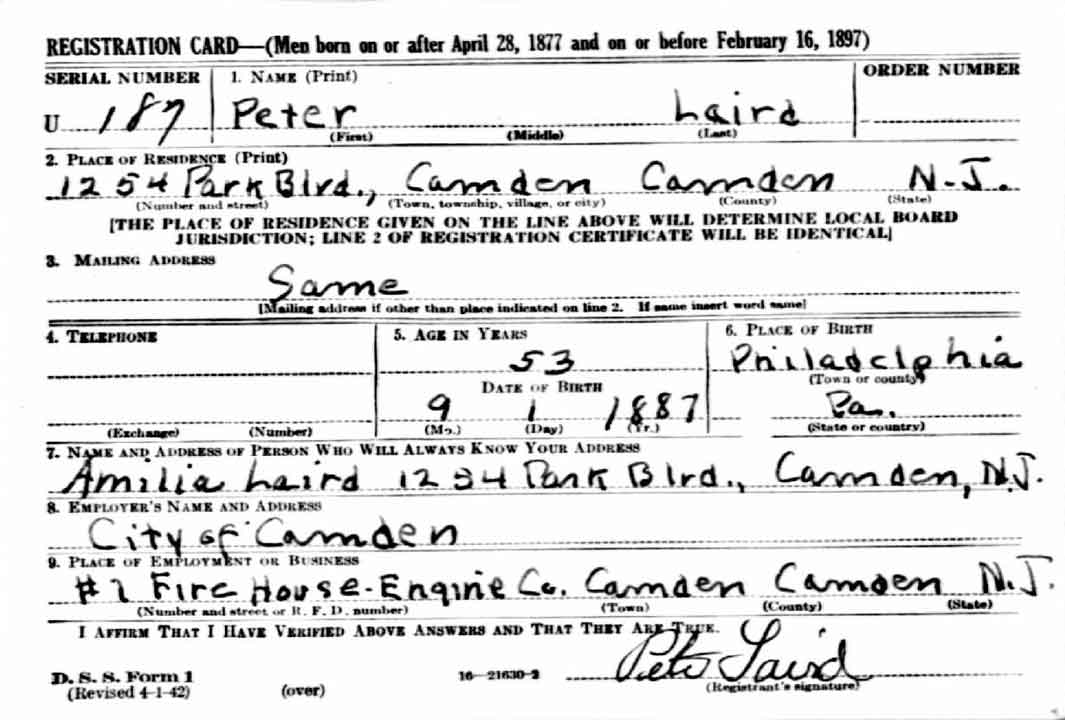 REGISTRATION CARD—(Men born on or after April 28, 1877 and on or before February 16, 1897)
SERIAL NUMBER 1. NAME (Print) ORDER NUMBER
U 187 Peter Laird
(First) (Middle) (Last)
2. PLACE OF RESIDENCE (Print)
1254 Park Blvd., Camden Camden N.J.
(Number and street) (Town, township, village, or city) (County) (State)
[THE PLACE OF RESIDENCE GIVEN ON THE LINE ABOVE WILL DETERMINE LOCAL BOARD
JURISDICTION; LINE 2 OF REGISTRATION CERTIFICATE WILL BE IDENTICAL]
3. MAILING ADDRESS
Same
[Mailing address if other than place indicated on line 2. If same insert word same]
4. TELEPHONE 5. AGE IN YEARS 6. PLACE OF BIRTH
53 Philadelphia
(Town or county)
DATE OF BIRTH
9 1 1887 Pa.
(Exchange) (Number) (Mo.) (Day) (Yr.) (State or country)
7. NAME AND ADDRESS OF PERSON WHO WILL ALWAYS KNOW YOUR ADDRESS
Amilia Laird 1254 Park Blrd., Camden, N.J.
8. EMPLOYER'S NAME AND ADDRESS
City of Camden
9. PLACE OF EMPLOYMENT OR BUSINESS
#1 Fire House-Engine Co. Camden Camden N.J.
(Number and street or R. F. D. number) (Town) (County) (State)
I AFFIRM THAT I HAVE VERIFIED ABOVE ANSWERS AND THAT THEY ARE TRUE.
Peter Laird
D. S. S. Form 1 16—21630-2
(Revised 4-1-42) (over) (Registrant's signature)